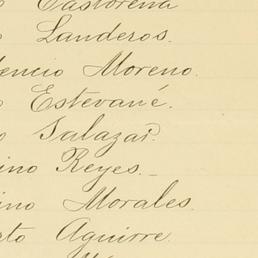 o Castorena
o Landeros.
dencio Moreno.
o Estevané.
o Salazar.
ino Reyes.
ino Morales.
rto Aguirre.